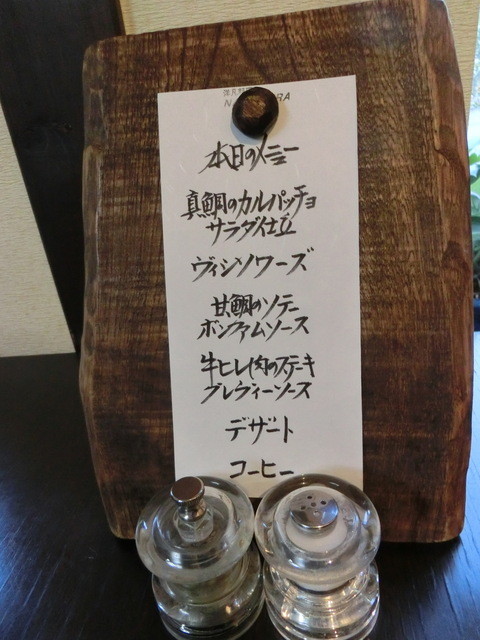 本日のメニュー
真鯛のカルパッチョ
サラダ仕立
ヴィシソワーズ
甘鯛のソテー
ボンファムソース
牛ヒレ肉のステーキ
グレヴィーソース
デザート
コーヒー